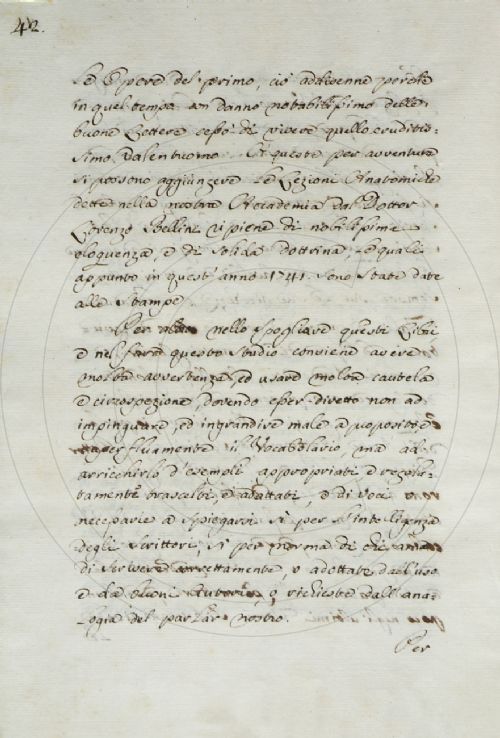 42.
Le Opere del primo, ciò addivenne perchè
in quel tempo con danno notabilissimo delle
buone Lettere cessò di vivere quello eruditis=
simo Valentuomo. A queste per avventura
si possono aggiungere le Lezioni Anatomiche
dette nella nostra Accademia dal Dottor
Lorenzo Bellini ripiene di nobilissima
eloquenza, e di solida dottrina, le quali
appunto in quest'anno 1741. sono state date
alle Stampe.
Per altro nello spogliare questi Libri
e nel fare questo studio conviene avere
molta avvertenza, ed usare molta cautela
e circospezione, dovendo esser diretto non ad
impinguare, ed ingrandire male a proposito, e
superfluamente il Vocabolario, ma ad
arricchirlo d'esempli appropriati e regola=
tamente trascelti, e adattati, e di voci
necessarie a spiegarsi sì per l'intelligenza
degli scrittori, sì per norma di chi ama
di scrivere correttamente, o adottate dall'uso
e da buoni Autori, o richieste dall'ana=
logia del parlar nostro.
Per